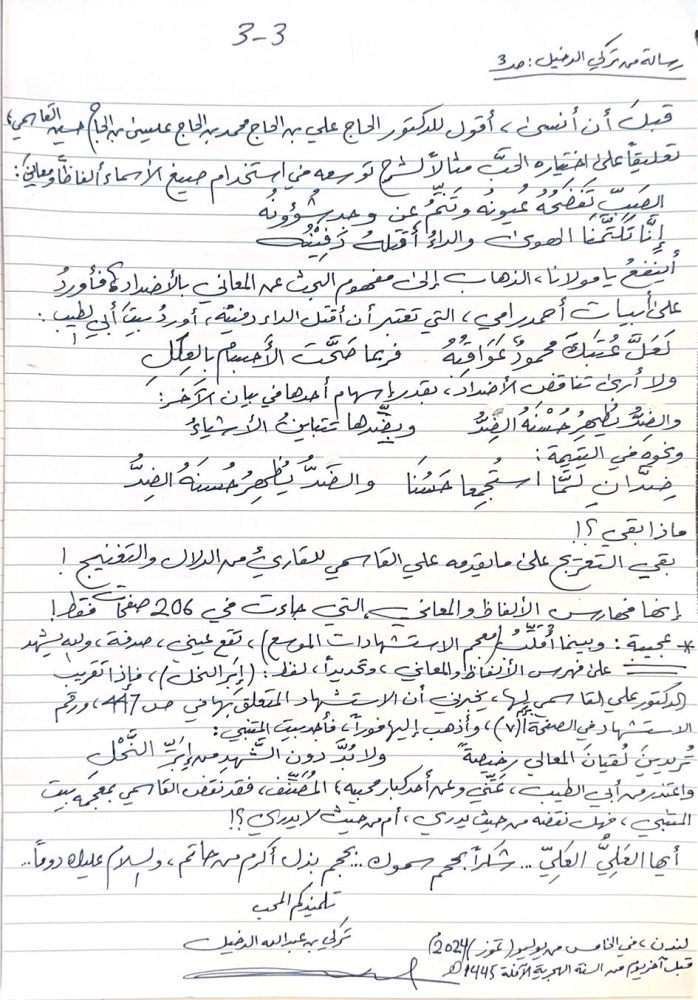 3-3
رسالة من تركي الدخيل: صـ3
قبل أن أنسى، أقول للدكتور الحاج علي بن الحاج محمد بن الحاج عيسى بن الحاج حسين القاسمي،
تعليقاً على اختياره الحبَّ مثالاً لشرح توسعه في استخدام صيغ الأسماء ألفاظاً ومعاني:
الصَبّ تَفضَحُهُ عُيونُه وَتَنِمُّ عن وجدٍ شُؤُونُه
إنَّا تَكَتَّمنَا الهوى والداءُ أَقتَلُهُ دَفِيْنُه
أينفعُ يا مولانا، الذهاب إلى مفهوم البحث عن المعاني بالأضداد؟ فأوردُ
على أبيات أحمد رامي، التي تعتبر أن أقتل الداء دفينُهُ، أوردُ بيتَ أبي لطيب:
لَعَلَّ عَتبَكَ محمودٌ عَوَاقبُهُ فربما صَحَّت الأَجسَامُ بالعِلَلِ
ولا أرى تناقض الأضداد، بقدر إسهام أحدها في بيان الآخر:
والضِدُّ يُظهِرُ حُسْنَهُ الضِدُّ وبضِّدها تتباينُ الأشياءُ
ونحوه في اليتيمة:
ضِدَّانِ لَمَّا استُجمِعا حَسُنَا والضَدُّ يُظهِرُ حُسنَهُ الضِدُّ
ماذا بقي؟!
بقي التعريج على ما يقدمه علي القاسمي للقارئ من الدلال والتغنيج!
إنها فهارس الألفاظ والمعاني، التي جاءت في 206 صفحات فقط!
* عجيبة: وبينما أُقَلِّبُ (معجم الاستشهادات الموسع)، تقع عيني، صدفة، والله يشهد
على فهرس الألفاظ والمعاني، وتحديداً، لفظ: (إبَر النحل)، فإذا تقريب
الدكتور علي القاسمي لها، يخبرني أن الاستشهاد المتعلق بها في صـ 447، ورقم
الاستشهاد في الصفحة (٧)، وأذهب إليها فوراً، فأجد بيت المتنبي:
تُريدينَ لُقيانَ المعالي رخيصةً ولا بُدَّ دون الشَّهدِ من إبَرِ النَّحْلِ
واعتذر من أبي الطيب، عَنِّي وعن أحد كبار محبيه؛ المُصَنِّف، فقد نقض القاسمي بمعجمه بيت
المتنبي، فهل نقضه من حيث يدري، أم من حيث لا يدري؟!
أيها العَلِيُّ العَلِيّ... شكراً بحجم سموك... بحجم بذل أكرم من حاتم، والسلام عليك دوماً...
تلميذكم المحب
تركي بن عبدالله الدخيل
لندن، في الخامس من يوليو (تموز) 2024/
قبل آخر يوم من السنة الهجرية الآفلة 1445هـ